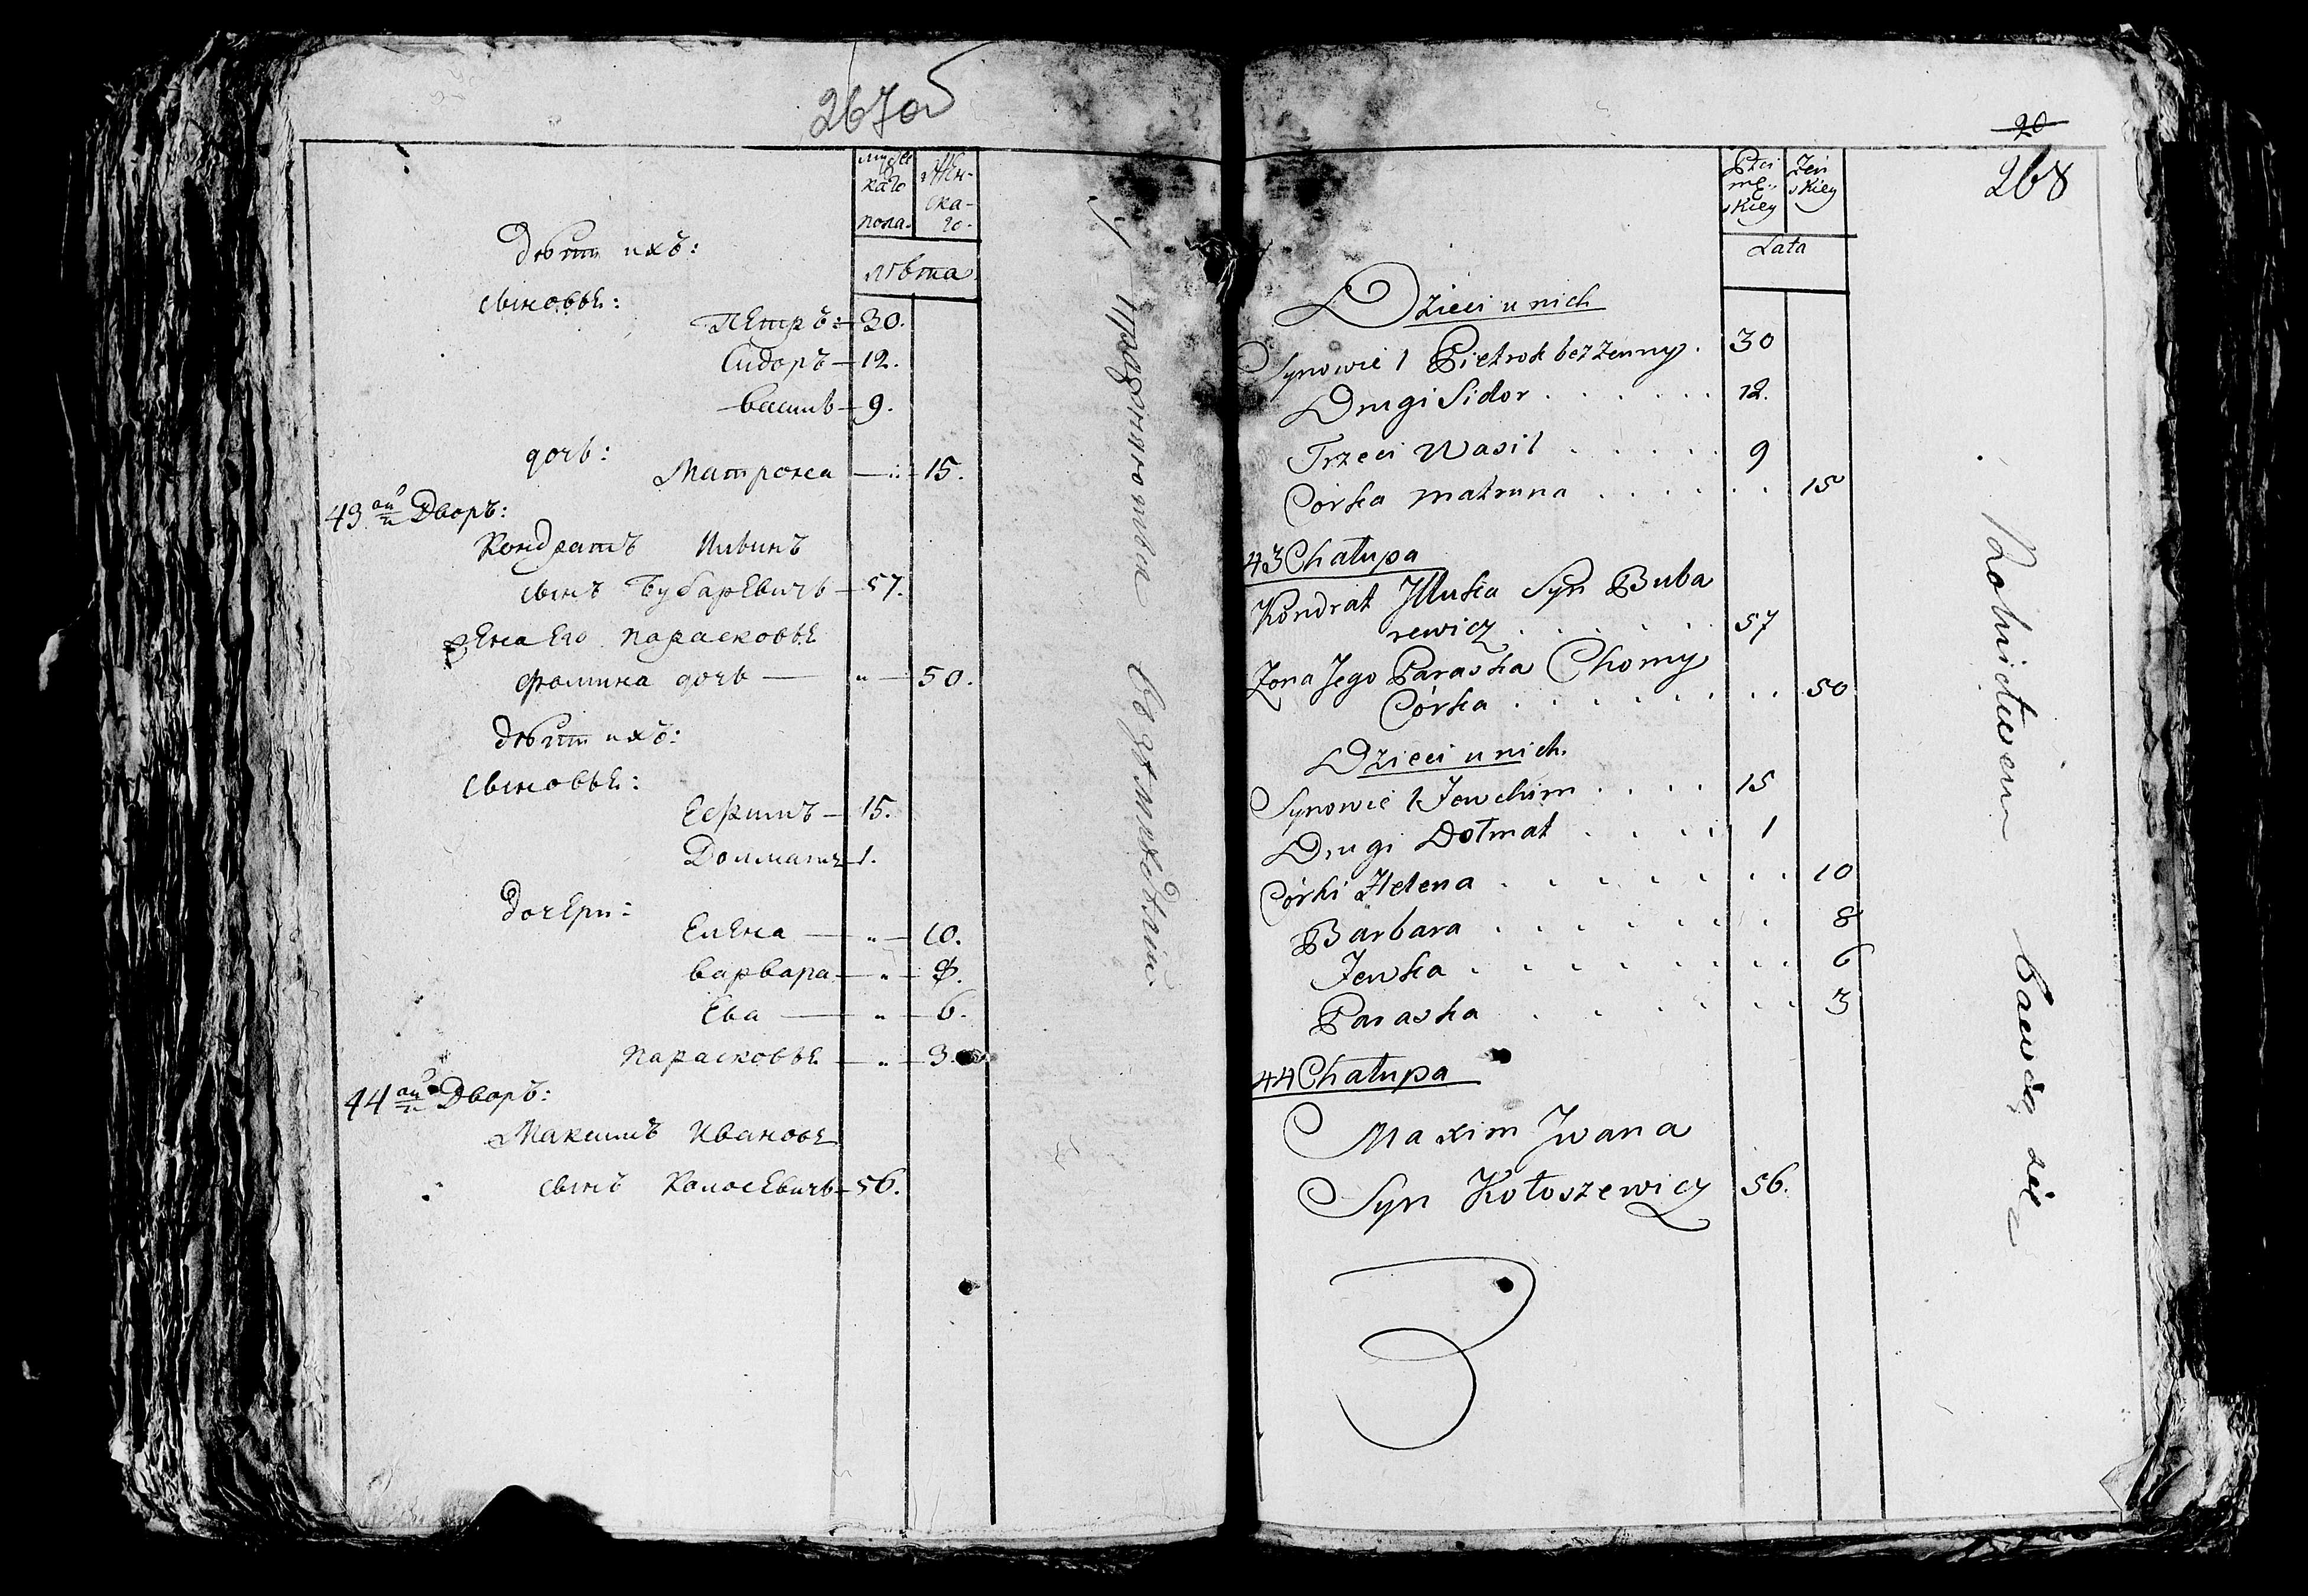 267об
мужескаго пола.
Женскаго.
лѣта.
Дѣти ихъ:
сыновье:
Петръ: 30.
Сидоръ — 12.
Василь — 9.
дочь:
Матрона — 15.
43ий Дворъ:
Кондратъ Иивинъ
сынъ Бубаревичь — 57.
Жена Его Парасковье
Фомина дочь — " — 50.
Дѣти ихъ:
сыновье:
Ефимъ — 15.
Долматъ — 1.
Дочери:
Елена — " — 10.
Варвара — " — 8.
Ева — " — 6.
Парасковье — " — 3.
44ий Дворъ:
Максимъ Иванове
сынъ Колосевичь — 56.
20
268
Płci męskiey
Żeńskiey
Lata
Dzieci u nich
Synowie 1 Pietrok bez żenny . 30
Drugi Sidor . . . . . . 12.
Trzeci Wasil . . . . . 9
Córka matruna . . . . . . 15
43 Chałupa
Kondrat Illuka Syn Buba
rewicz . . . . . . 57
Żona Jego Paraska Chomy
Córka . . . . . . . . 50
Dzieci u nich.
Synowie 1 Jewchim . . . . 15
Drugi Dołmat . . . . 1
Córki Helena . . . . . . . . 10
Barbara . . . . . . . 8
Jewka . . . . . . . . 6
Paraska . . . . . . . 3
44 Chałupa
Maxim Jwana
Syn Kołoszewicz 56.
Rolnictwem bawią się